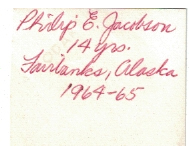 Philip E. Jacobson
14 yrs.
Fairbanks, Alaska
1964-65